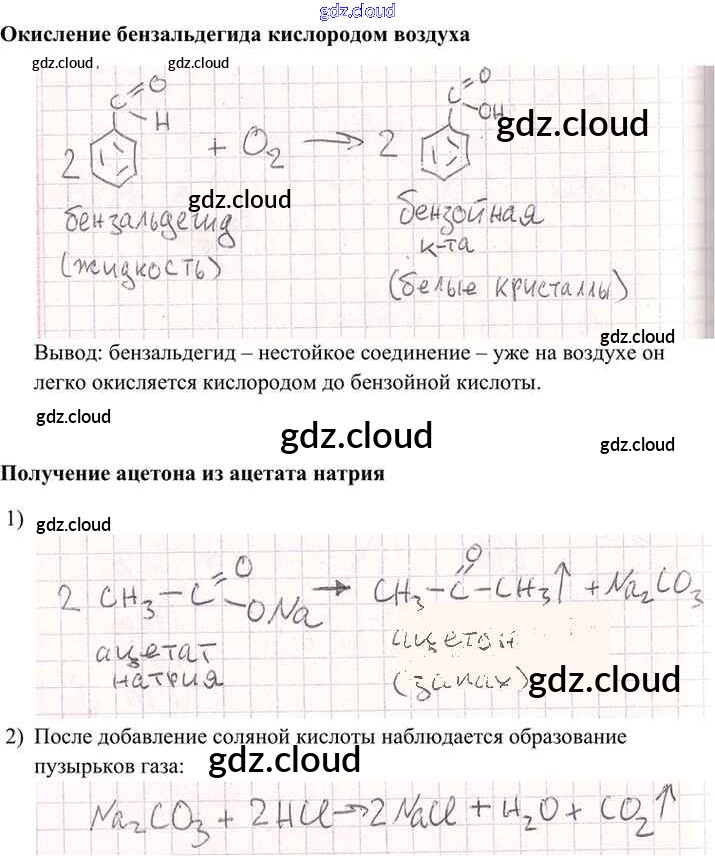 gdz.cloud
Окисление бензальдегида кислородом воздуха
gdz.cloud gdz.cloud
C O H
2 + O₂ → 2 C O OH
gdz.cloud
gdz.cloud
бензальдегид бензойная
к-та
(жидкость) (белые кристаллы)
gdz.cloud
Вывод: бензальдегид – нестойкое соединение – уже на воздухе он
легко окисляется кислородом до бензойной кислоты.
gdz.cloud gdz.cloud gdz.cloud
Получение ацетона из ацетата натрия
1) gdz.cloud
2 CH₃ – C = O ONa → CH₃ – C – CH₃↑ + Na₂CO₃
O
ацетат ацетон
натрия (запах) gdz.cloud
2) После добавление соляной кислоты наблюдается образование
пузырьков газа: gdz.cloud
Na₂CO₃ + 2HCl → 2NaCl + H₂O + CO₂↑